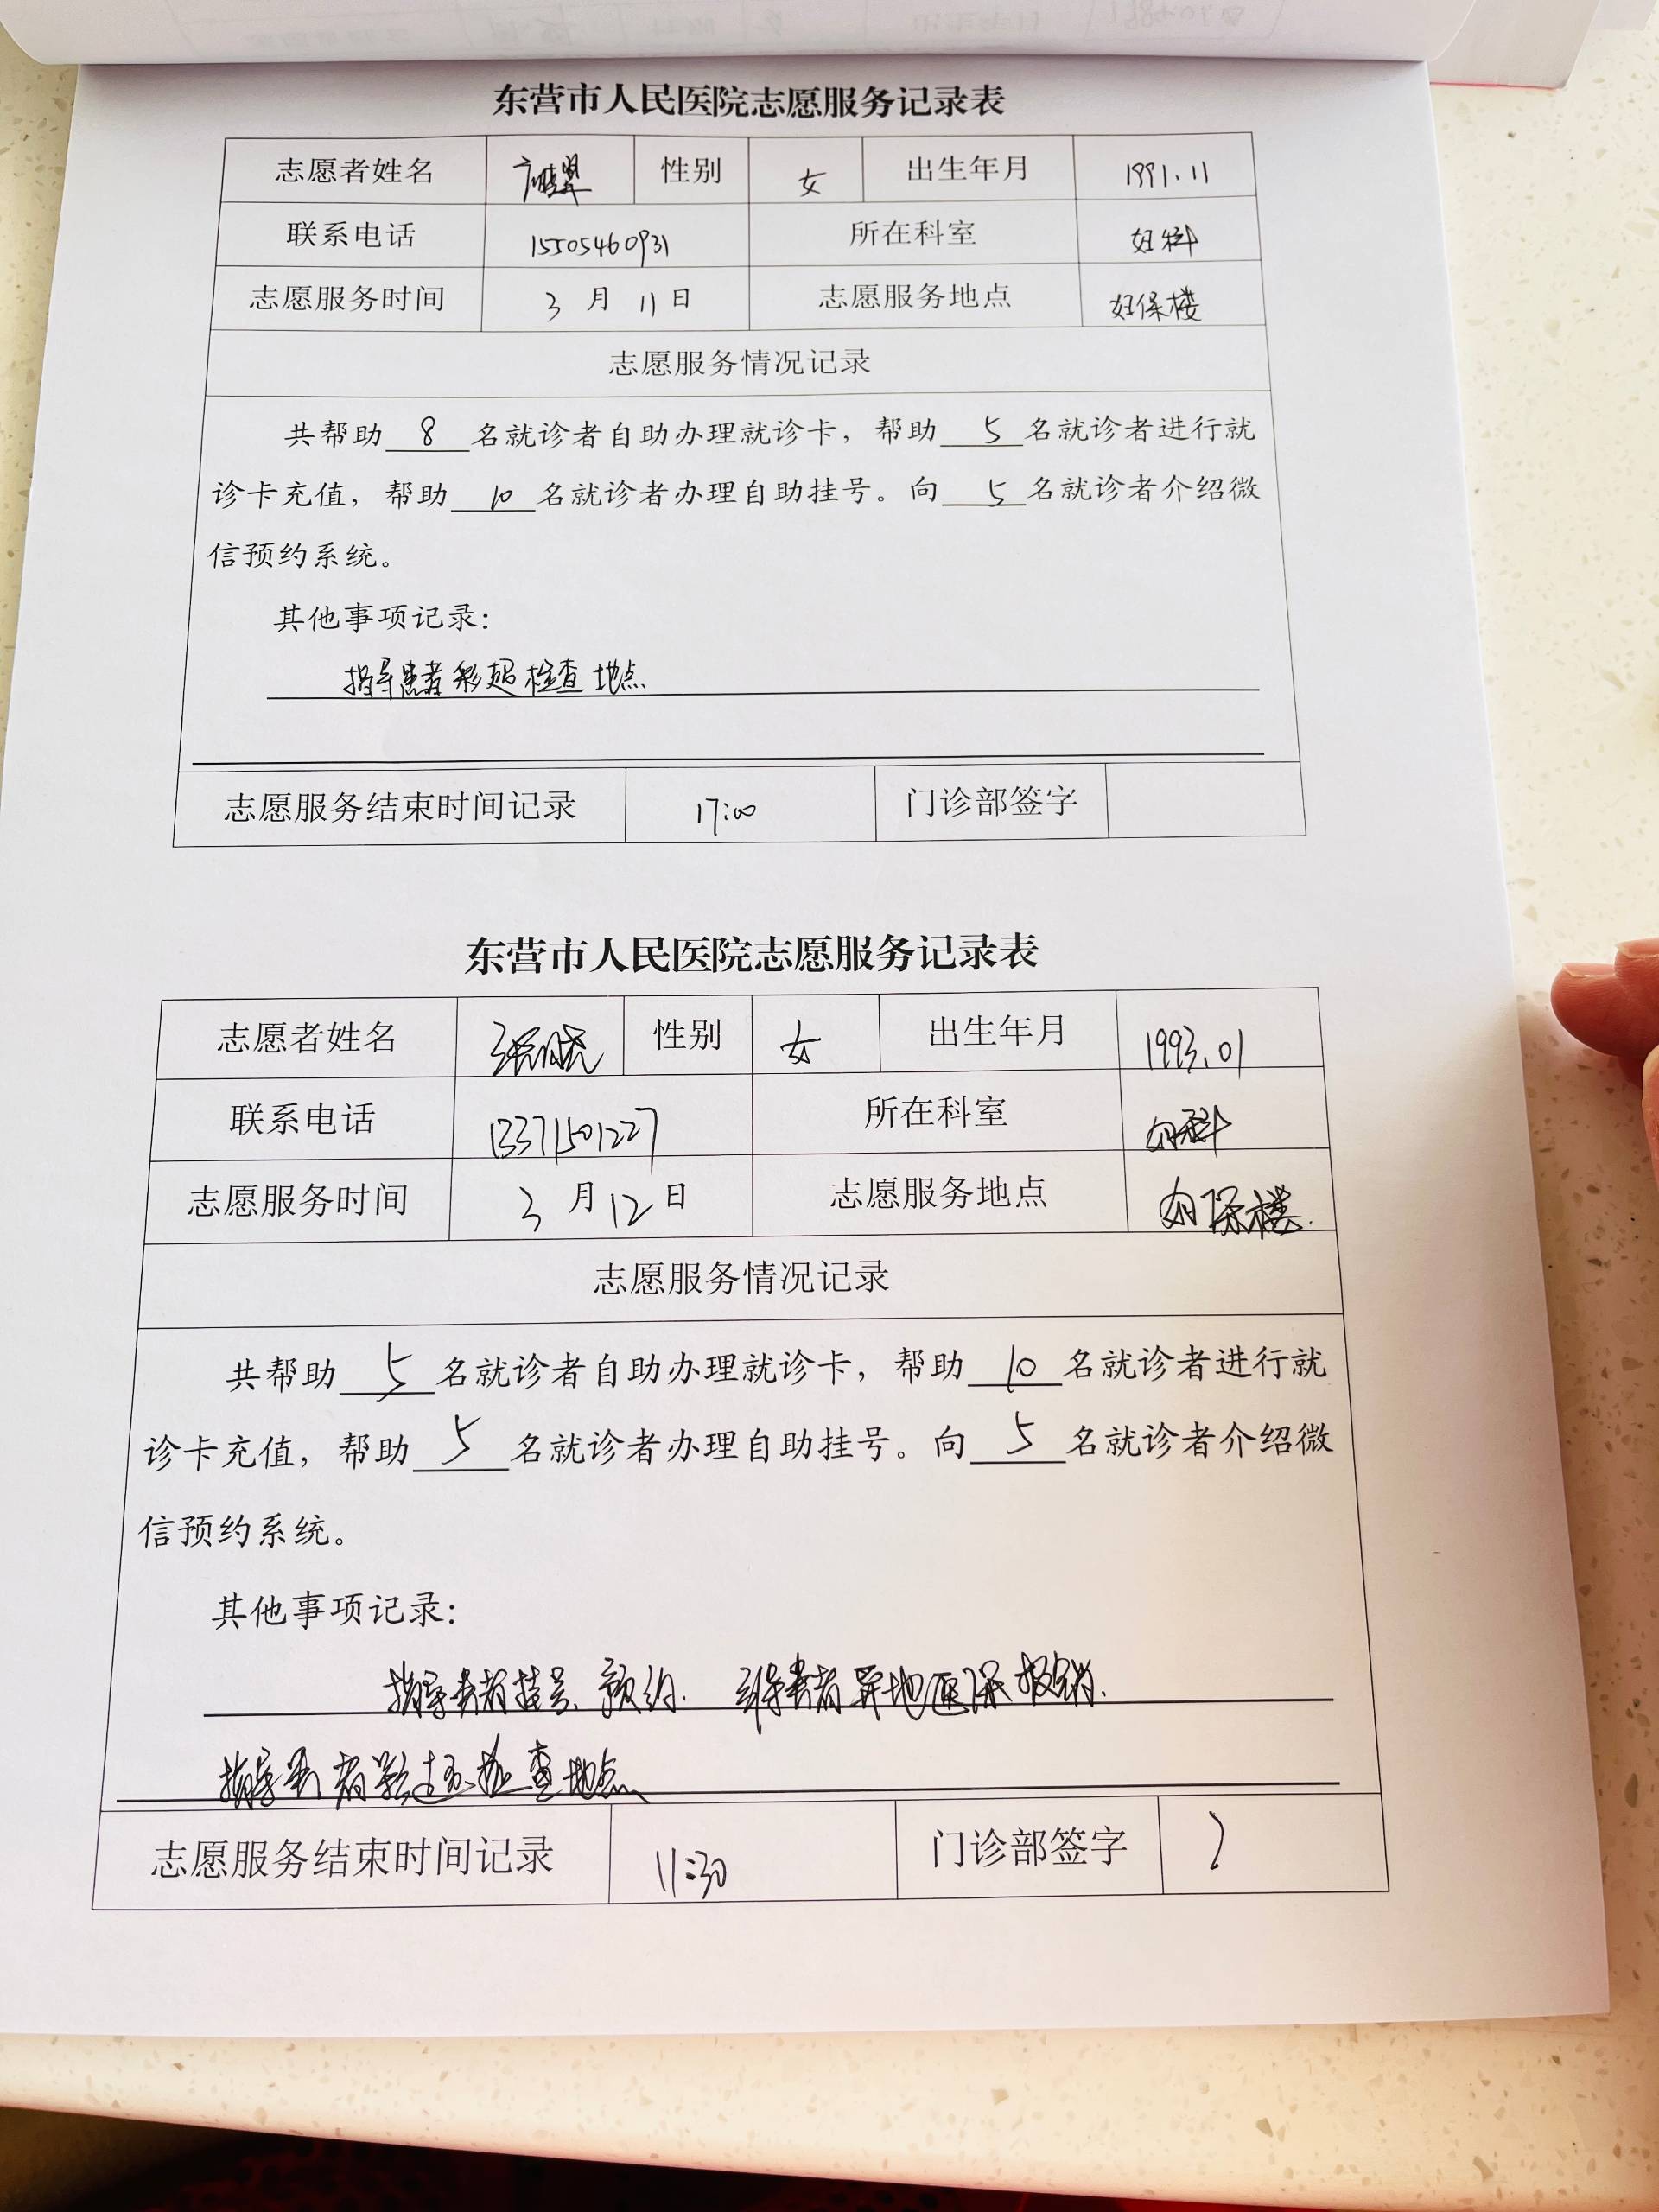 东营市人民医院志愿服务记录表
志愿者姓名 性别 女 出生年月 1991.11
联系电话 15505460931 所在科室 妇科
志愿服务时间 3 月 11 日 志愿服务地点 妇保楼
志愿服务情况记录
共帮助 8 名就诊者自助办理就诊卡，帮助 5 名就诊者进行就
诊卡充值，帮助 10 名就诊者办理自助挂号。向 5 名就诊者介绍微
信预约系统。
其他事项记录：
指导患者彩超检查地点
志愿服务结束时间记录 17:00 门诊部签字
东营市人民医院志愿服务记录表
志愿者姓名 张晓 性别 女 出生年月 1993.01
联系电话 13371501227 所在科室 妇科
志愿服务时间 3 月 12 日 志愿服务地点 妇保楼.
志愿服务情况记录
共帮助 5 名就诊者自助办理就诊卡，帮助 10 名就诊者进行就
诊卡充值，帮助 5 名就诊者办理自助挂号。向 5 名就诊者介绍微
信预约系统。
其他事项记录：
指导患者挂号、预约. 患者异地医保报销.
指导患者彩超检查地点
志愿服务结束时间记录 11:30 门诊部签字